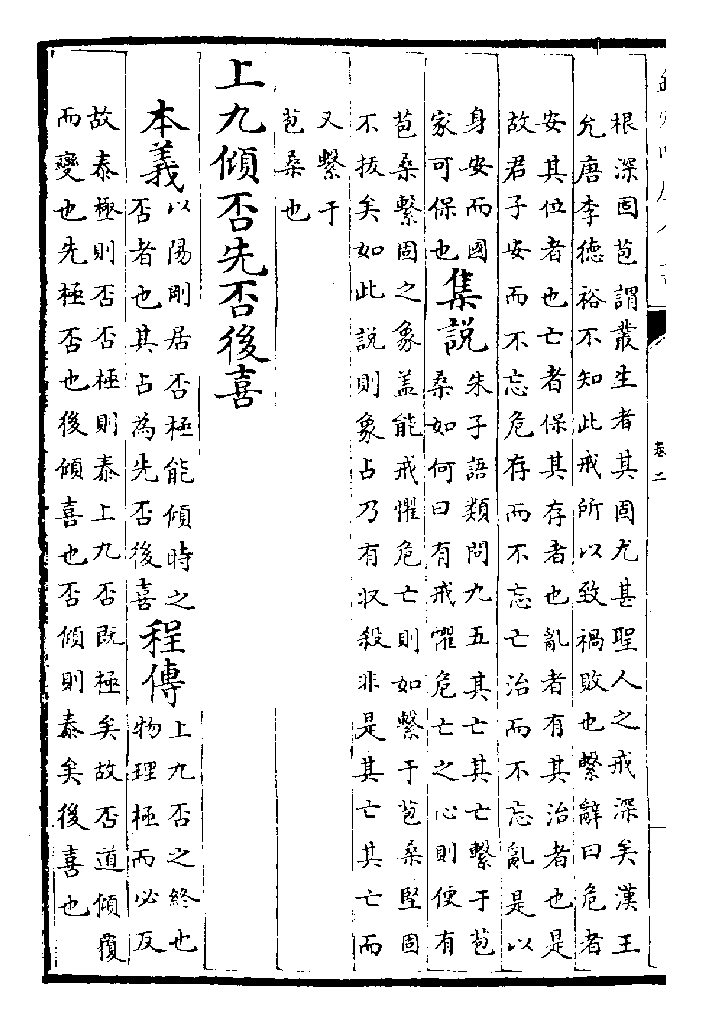 卷二
根深固苞謂叢生者其固尤甚聖人之戒深矣漢王
允唐李德裕不知此戒所以致禍敗也繫辭曰危者
安其位者也亡者保其存者也亂者有其治者也是
故君子安而不忘危存而不忘亡治而不忘亂是以
身安而國
家可保也
集說
朱子語類問九五其亡其亡繫于苞
桑如何曰有戒懼危亡之心則便有
苞桑繫固之象盖能戒懼危亡則如繫于苞桑堅固
不拔矣如此說則象占乃有収殺非是其亡其亡而
又繫于
苞桑也
上九傾否先否後喜
本義
以陽剛居否極能傾時之
否者也其占為先否後喜
程傳
上九否之終也
物理極而必反
故泰極則否否極則泰上九否既極矣故否道傾覆
而變也先極否也後傾喜也否傾則泰矣後喜也